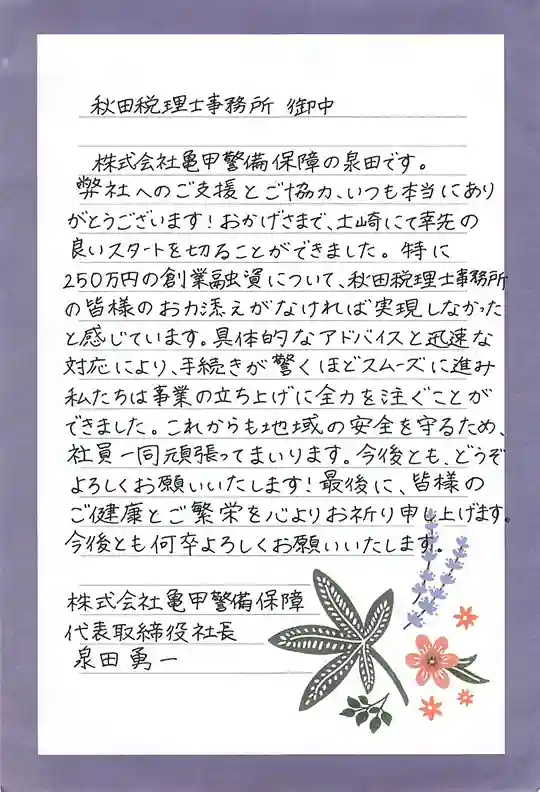 秋田税理士事務所 御中
株式会社亀甲警備保障の泉田です。
弊社へのご支援とご協力、いつも本当にあり
がとうございます！おかげさまで、土崎にて幸先の
良いスタートを切ることができました。特に
250万円の創業融資について、秋田税理士事務所
の皆様のお力添えがなければ実現しなかった
と感じています。具体的なアドバイスと迅速な
対応により、手続きが驚くほどスムーズに進み
私たちは事業の立ち上げに全力を注ぐことが
できました。これからも地域の安全を守るため、
社員一同頑張ってまいります。今後とも、どうぞ
よろしくお願いいたします！最後に、皆様の
ご健康とご繁栄を心よりお祈り申し上げます。
今後とも何卒よろしくお願いいたします。
株式会社亀甲警備保障
代表取締役社長
泉田勇一